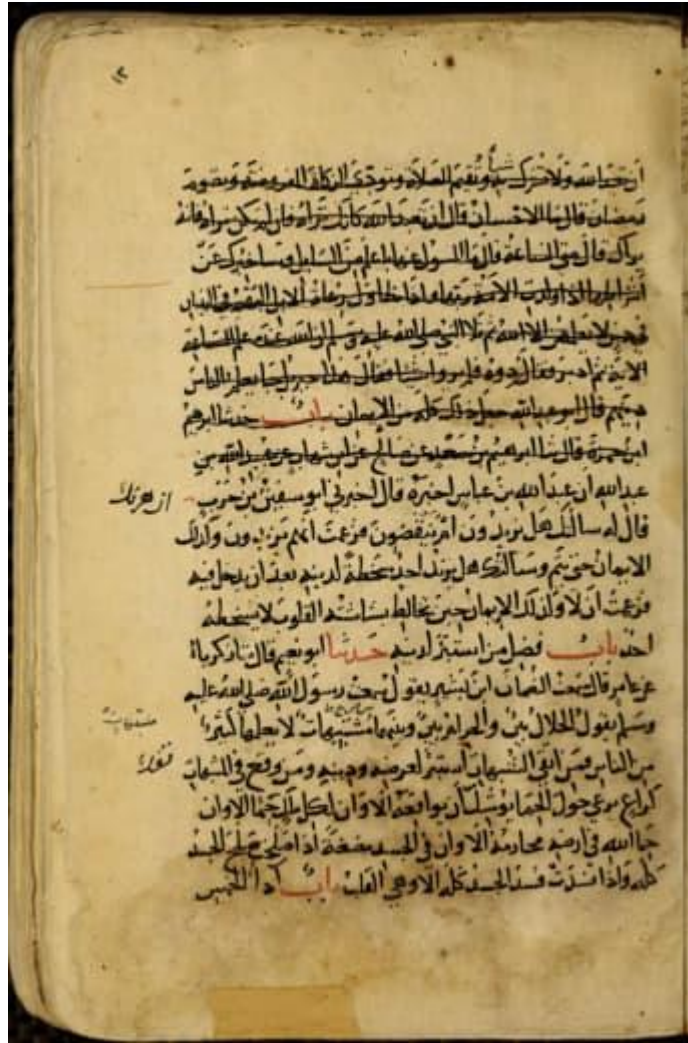 ١٣
أن تعبد الله ولا تشرك به شيأ وتقيم الصلاة وتودي الزكاة المفروضة وتصوم
رمضان قال ما الاحسان قال ان تعبد الله كانك تراه فان لم تكن تراه فانه
يراك قال متى الساعة قال ما المسول عنها باعلم من السايل وساخبرك عن
أشراطها اذا ولدت الامة ربها واذا تطاول رعاة الابل البهم في البنيان
في خمس لا يعلمهن الا الله ثم تلا النبي صلى الله عليه وسلم ان الله عنده علم الساعة
الاية ثم ادبر فقال ردوه فلم يروا شيا فقال هذا جبريل جا يعلم الناس
دينهم قال ابو عبد الله جعل ذلك كله من الايمان باب حدثنا ابرهيم
ابن حمزة قال ثنا ابراهيم بن سعد عن صالح عن ابن شهاب عن عبيد الله بن
عبد الله ان عبد الله بن عباس اخبره قال اخبرني ابو سفين بن حرب
ان هرقل
قال له سالتك هل يزيدون ام ينقصون فزعمت انهم يزيدون وكذلك
الايمان حتى يتم وسالتك هل يرتد احد سخطة لدينه بعد ان يدخل فيه
فزعمت ان لا وكذلك الايمان حين يخالط بشاشته القلوب لا يسخطه
احد باب فضل من استبرا لدينه حدثنا ابو نعيم قال ثنا زكرياء
عن عامر قال سمعت النعمان ابن بشير يقول سمعت رسول الله صلى الله عليه
وسلم يقول الحلال بين والحرام بين وبينهما مشبهات لا يعلمها كثير
من الناس فمن اتقى الشبهات استبرا لعرضه ودينه ومن وقع في الشبهات
كراع يرعى حول الحما يوشك أن يواقعه الا وان لكل ملك حما الا وان
حما الله في ارضه محارمه الا وان في الجسد مضغة اذا صلحت صلح الجسد
كله واذا فسدت فسد الجسد كله الا وهي القلب باب أدا الخمس